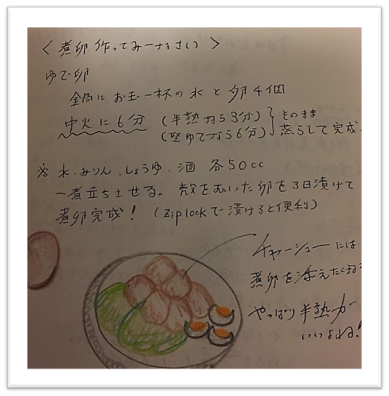 <煮卵作ってみーなさい>
ゆで卵
全鍋にお玉一杯の水と卵4個
中火に6分 (半熟なら3分) そのまま
(堅ゆでなら6分) 蒸らして完成
※水.みりん.しょうゆ.酒 各50cc
一煮立ちさせる。殻をむいた卵を3日漬けて
煮卵完成! (Ziplockで漬けると便利)
チャーシューには
煮卵を添えたくなる
やっぱり半熟が
いいよね!